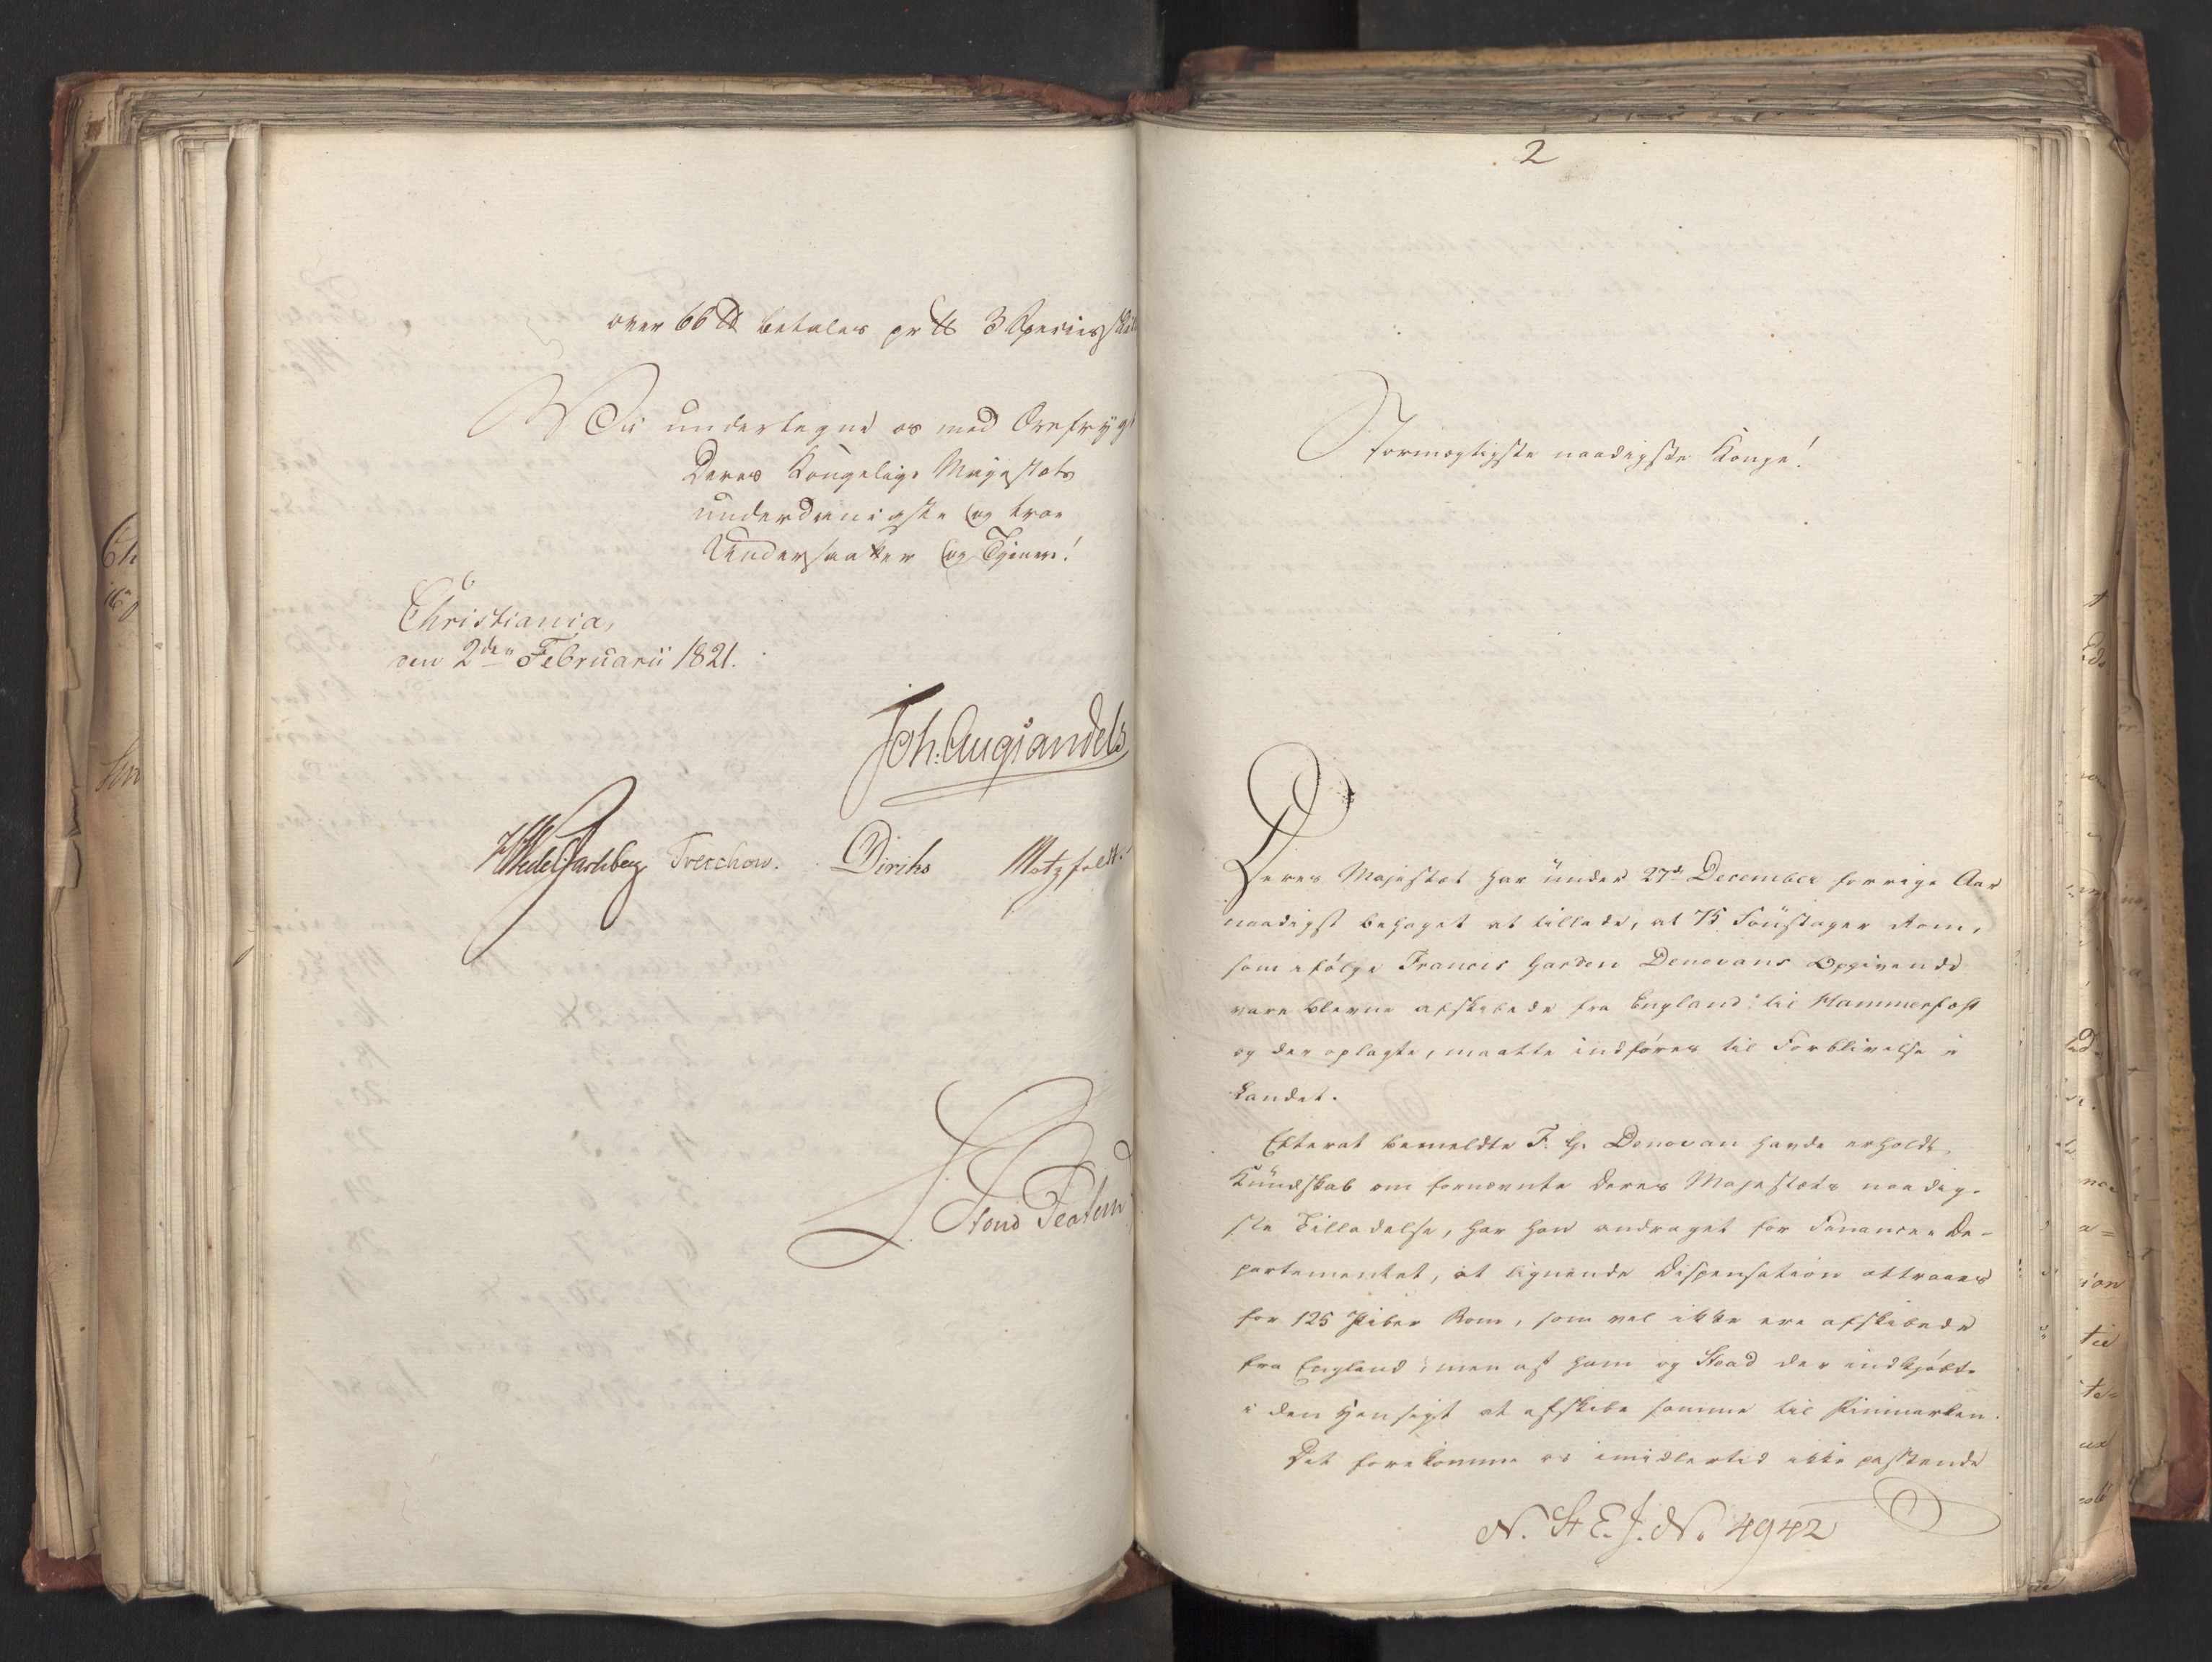 over 66 ℔ betales pr ℔ 3 Speciesskil
Vi undertegne os med Ærefrygt
Deres Kongelige Majestæts
underdanigste og troe
Undersaatter og Tjenere!
Christiania,
den 2den Februarii 1821.
Joh: Aug Sandels
HWedelJarlsberg Treschow. Diriks Motzfeldt.
2
Stormægtigste naadigste Konge!
Deres Majestæt har under 27de December forrige Aar
naadigst behaget at tillade, at 75 Foustager Rom,
som ifølge Francis Garden Donovans Opgivende
vare blevne afskibede fra England til Hammerfest
og der oplagte, maatte indføres til Forblivelse i
Landet.
Efterat bemeldte F. G. Donovan havde erholdt
Kundskab om fornævnte Deres Majestæts naadig-
ste Tilladelse, har han andraget for Finance De-
partementet, at lignende Dispensation attraaes
for 125 Piber Rom, som vel ikke ere afskibede
fra England, men af ham og Head der indkjøbt
i den Hensigt at afskibe samme til Finmarken.
Det forekomme os imidlertid ikke passende
N. St E. J. No 4942